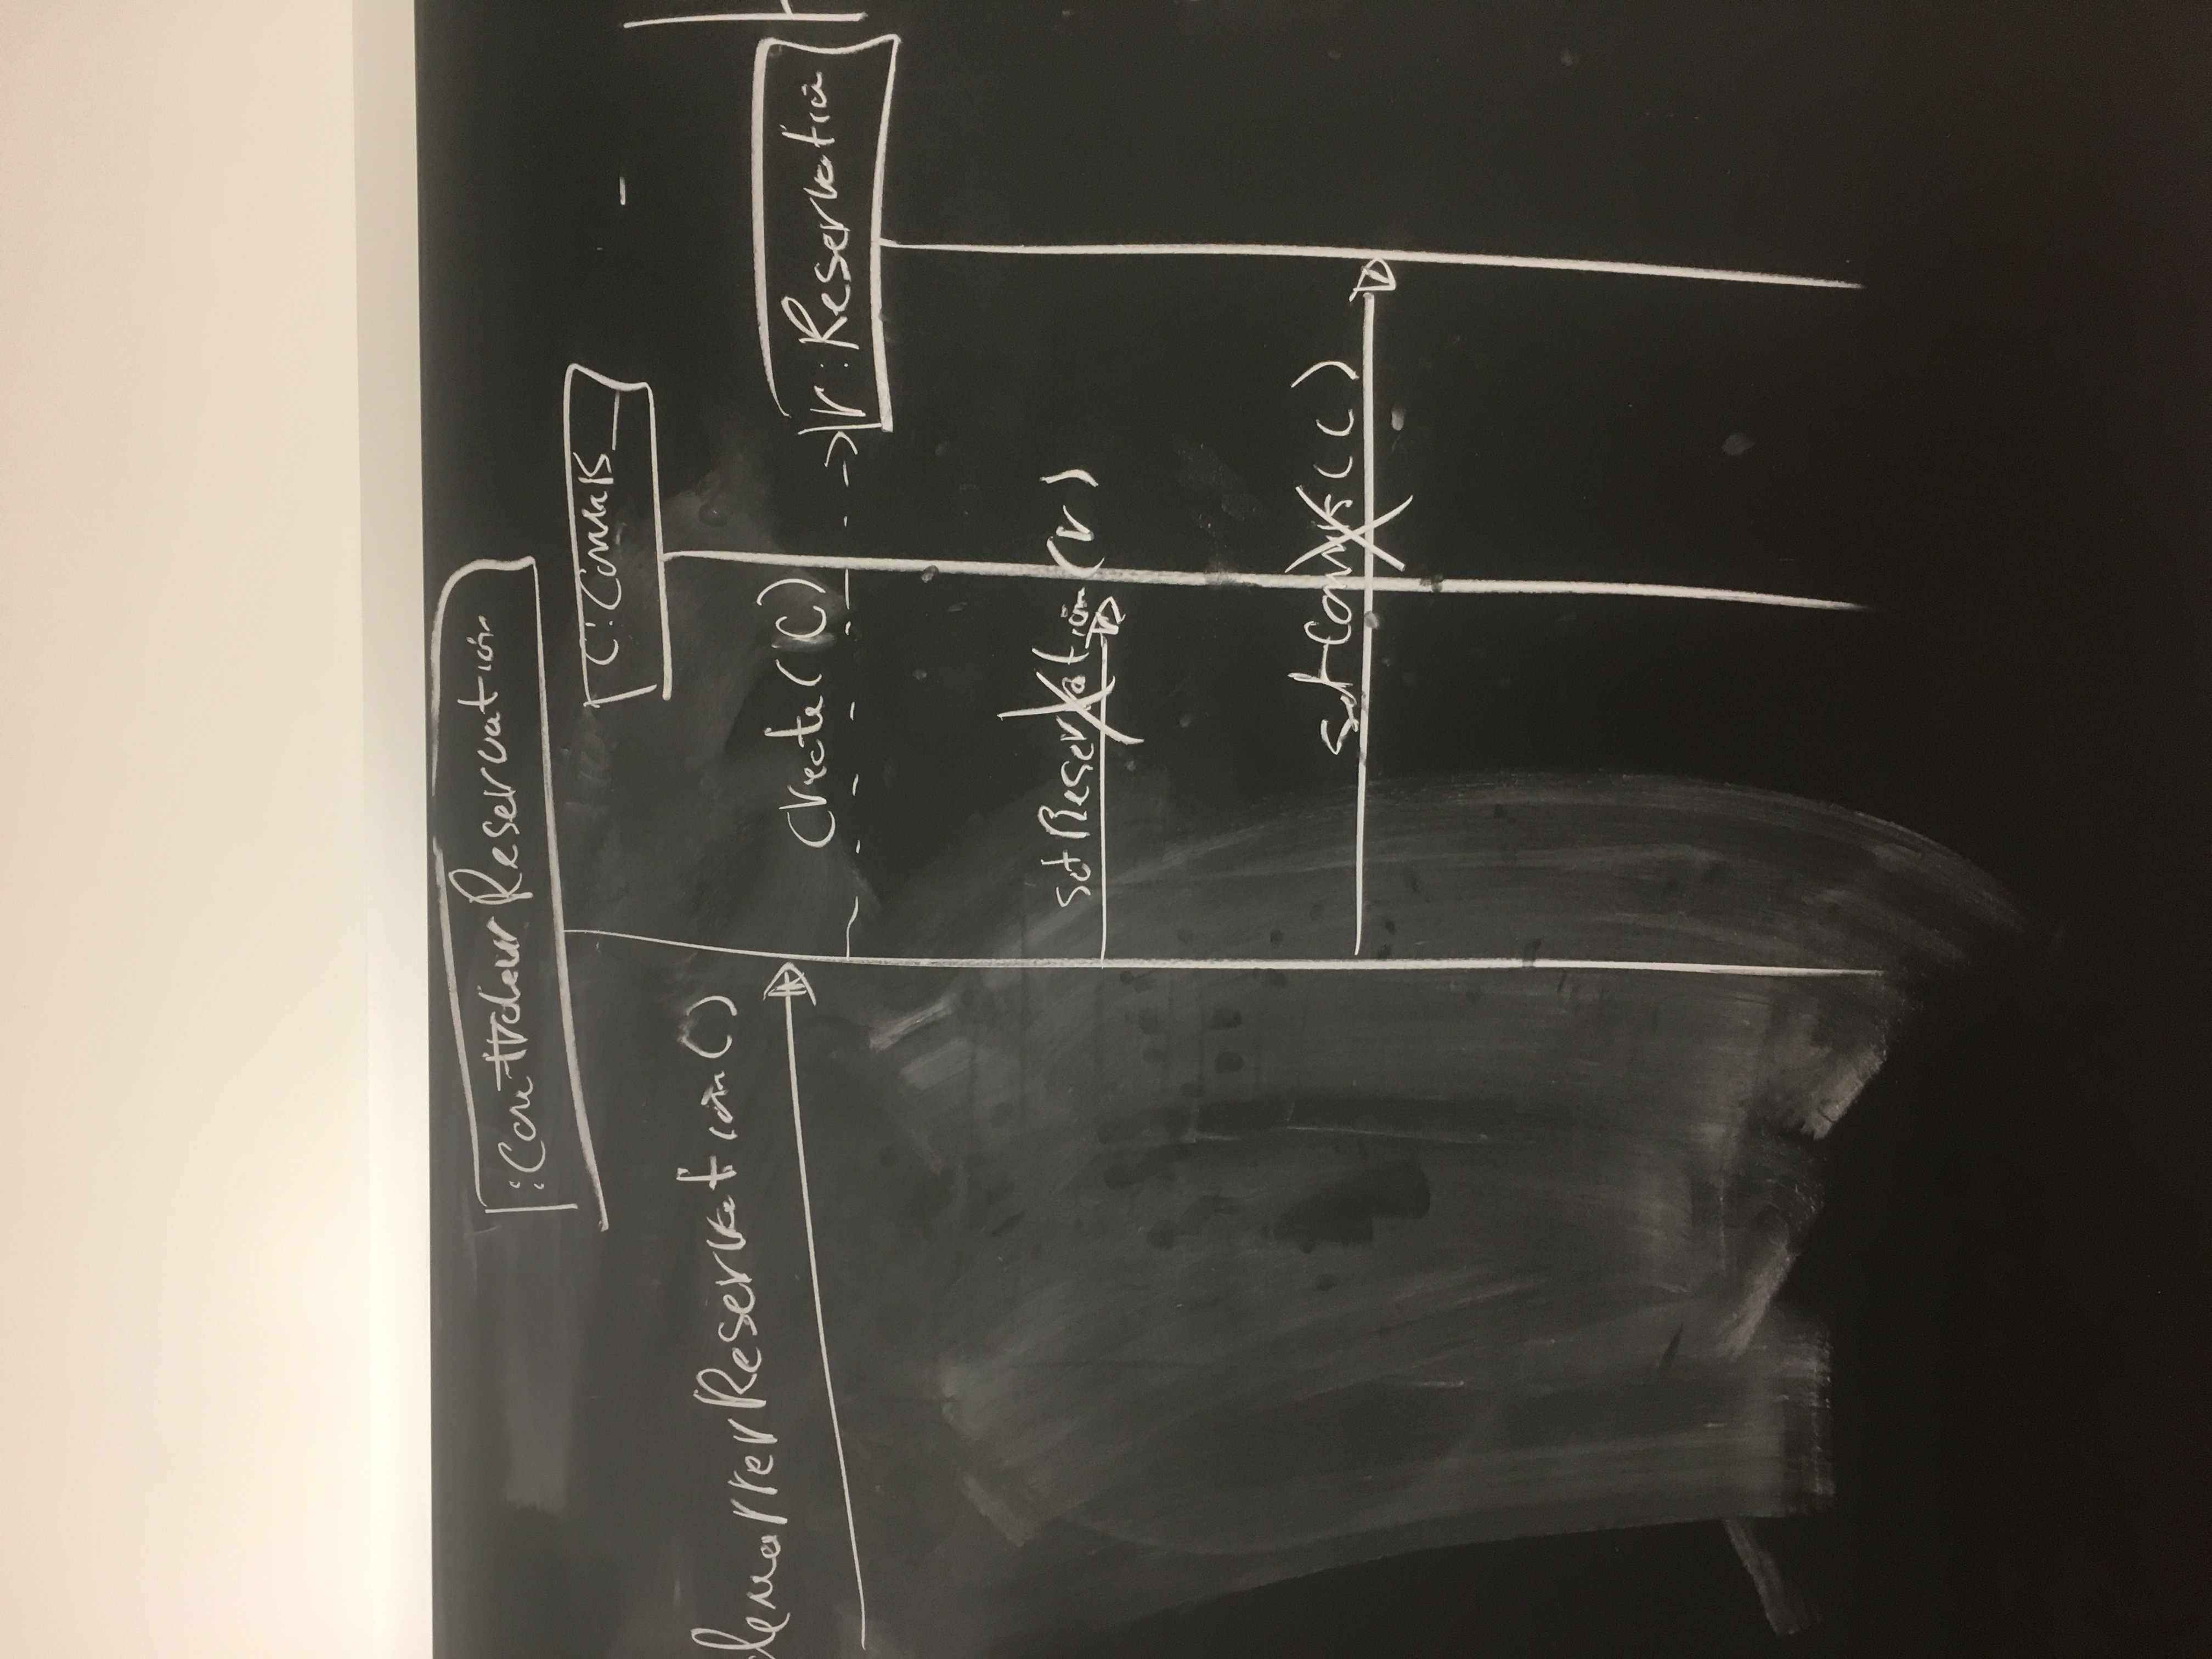 :ControleurReservation
c:Commis
demarrerReservation()
create(c)
r:Reservation
setReservation(r)
setCommis(c)